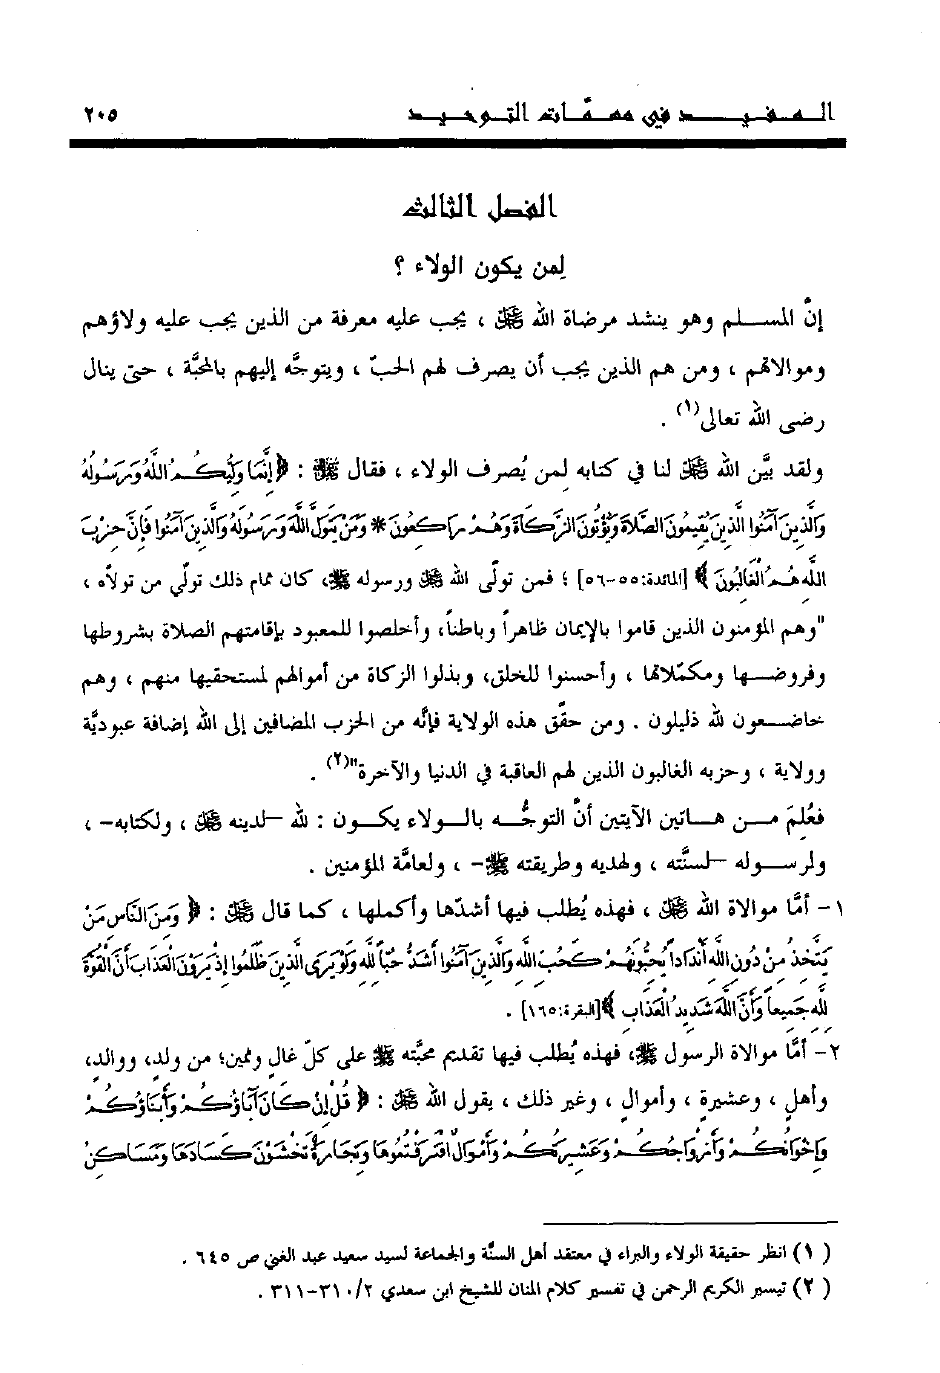 المفيد في مهمّات التوحيد ٢٠٥
الفصل الثالث
لِمن يكون الولاء ؟
إنّ المسلم وهو ينشد مرضاة الله ﷻ ، يجب عليه معرفة من الذين يجب عليه ولاؤهم
وموالاتهم ، ومن هم الذين يجب أن يصرف لهم الحبّ ، ويتوجَّه إليهم بالمحبَّة ، حتى ينال
رضى الله تعالى(١) .
ولقد بيَّن الله ﷻ لنا في كتابه لمن يُصرف الولاء ، فقال ﷻ : ﴿ إِنَّمَا وَلِيُّكُمُ اللَّهُ وَرَسُولُهُ
وَالَّذِينَ آمَنُوا الَّذِينَ يُقِيمُونَ الصَّلَاةَ وَيُؤْتُونَ الزَّكَاةَ وَهُمْ رَاكِعُونَ * وَمَنْ يَتَوَلَّ اللَّهَ وَرَسُولَهُ وَالَّذِينَ آمَنُوا فَإِنَّ حِزْبَ
اللَّهِ هُمُ الْغَالِبُونَ ﴾ [المائدة:٥٥-٥٦] ؛ فمن تولّى الله ﷻ ورسوله ﷺ، كان تمام ذلك تولّي من تولاّه ،
"وهم المؤمنون الذين قاموا بالإيمان ظاهراً وباطناً، وأخلصوا للمعبود بإقامتهم الصلاة بشروطها
وفروضها ومكمّلاتها ، وأحسنوا للخلق، وبذلوا الزكاة من أموالهم لمستحقيها منهم ، وهم
خاضعون لله ذليلون . ومن حقّق هذه الولاية فإنَّه من الحزب المضافين إلى الله إضافة عبوديَّة
وولاية ، وحزبه الغالبون الذين لهم العاقبة في الدنيا والآخرة"(٢) .
فعُلِمَ من هاتين الآيتين أنَّ التوجُّه بالولاء يكون : لله –لدينه ﷻ ، ولكتابه– ،
ولرسوله –لسنَّته ، ولهديه وطريقته ﷺ– ، ولعامَّة المؤمنين .
١- أمَّا موالاة الله ﷻ ، فهذه يُطلب فيها أشدّها وأكملها ، كما قال ﷻ : ﴿ وَمِنَ النَّاسِ مَنْ
يَتَّخِذُ مِنْ دُونِ اللَّهِ أَنْدَاداً يُحِبُّونَهُمْ كَحُبِّ اللَّهِ وَالَّذِينَ آمَنُوا أَشَدُّ حُبّاً لِلَّهِ وَلَوْ يَرَى الَّذِينَ ظَلَمُوا إِذْ يَرَوْنَ الْعَذَابَ أَنَّ الْقُوَّةَ
لِلَّهِ جَمِيعاً وَأَنَّ اللَّهَ شَدِيدُ الْعَذَابِ ﴾[البقرة:١٦٥] .
٢- أمَّا موالاة الرسول ﷺ، فهذه يُطلب فيها تقديم محبَّته ﷺ على كلّ غالٍ وثمين؛ من ولدٍ، ووالدٍ،
وأهلٍ ، وعشيرةٍ ، وأموالٍ ، وغير ذلك ، يقول الله ﷻ : ﴿ قُلْ إِنْ كَانَ آبَاؤُكُمْ وَأَبْنَاؤُكُمْ
وَإِخْوَانُكُمْ وَأَزْوَاجُكُمْ وَعَشِيرَتُكُمْ وَأَمْوَالٌ اقْتَرَفْتُمُوهَا وَتِجَارَةٌ تَخْشَوْنَ كَسَادَهَا وَمَسَاكِنُ
(١) انظر حقيقة الولاء والبراء في معتقد أهل السنَّة والجماعة لسيد سعيد عبد الغني ص ٦٤٥ .
(٢) تيسير الكريم الرحمن في تفسير كلام المنان للشيخ ابن سعدي ٣١٠/٢-٣١١ .